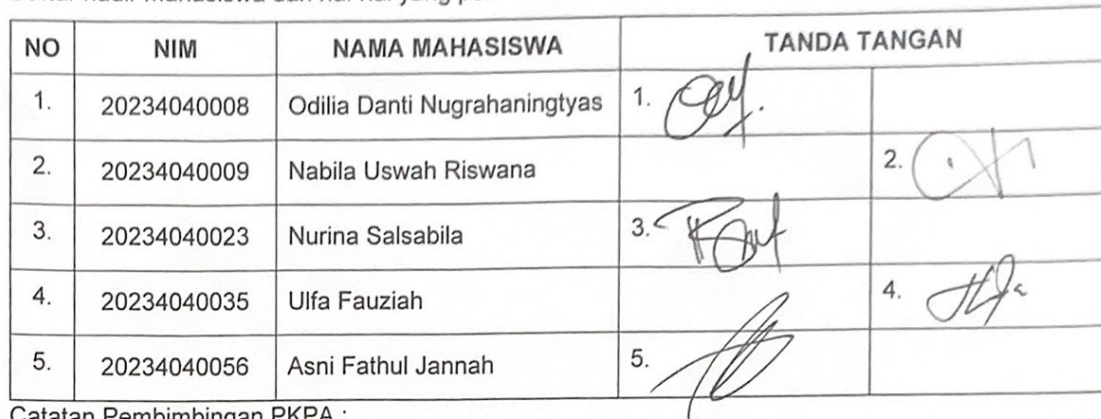 NO NIM NAMA MAHASISWA TANDA TANGAN
1. 20234040008 Odilia Danti Nugrahaningtyas 1.
2. 20234040009 Nabila Uswah Riswana 2.
3. 20234040023 Nurina Salsabila 3.
4. 20234040035 Ulfa Fauziah 4.
5. 20234040056 Asni Fathul Jannah 5.
Catatan Pembimbingan PKPA :